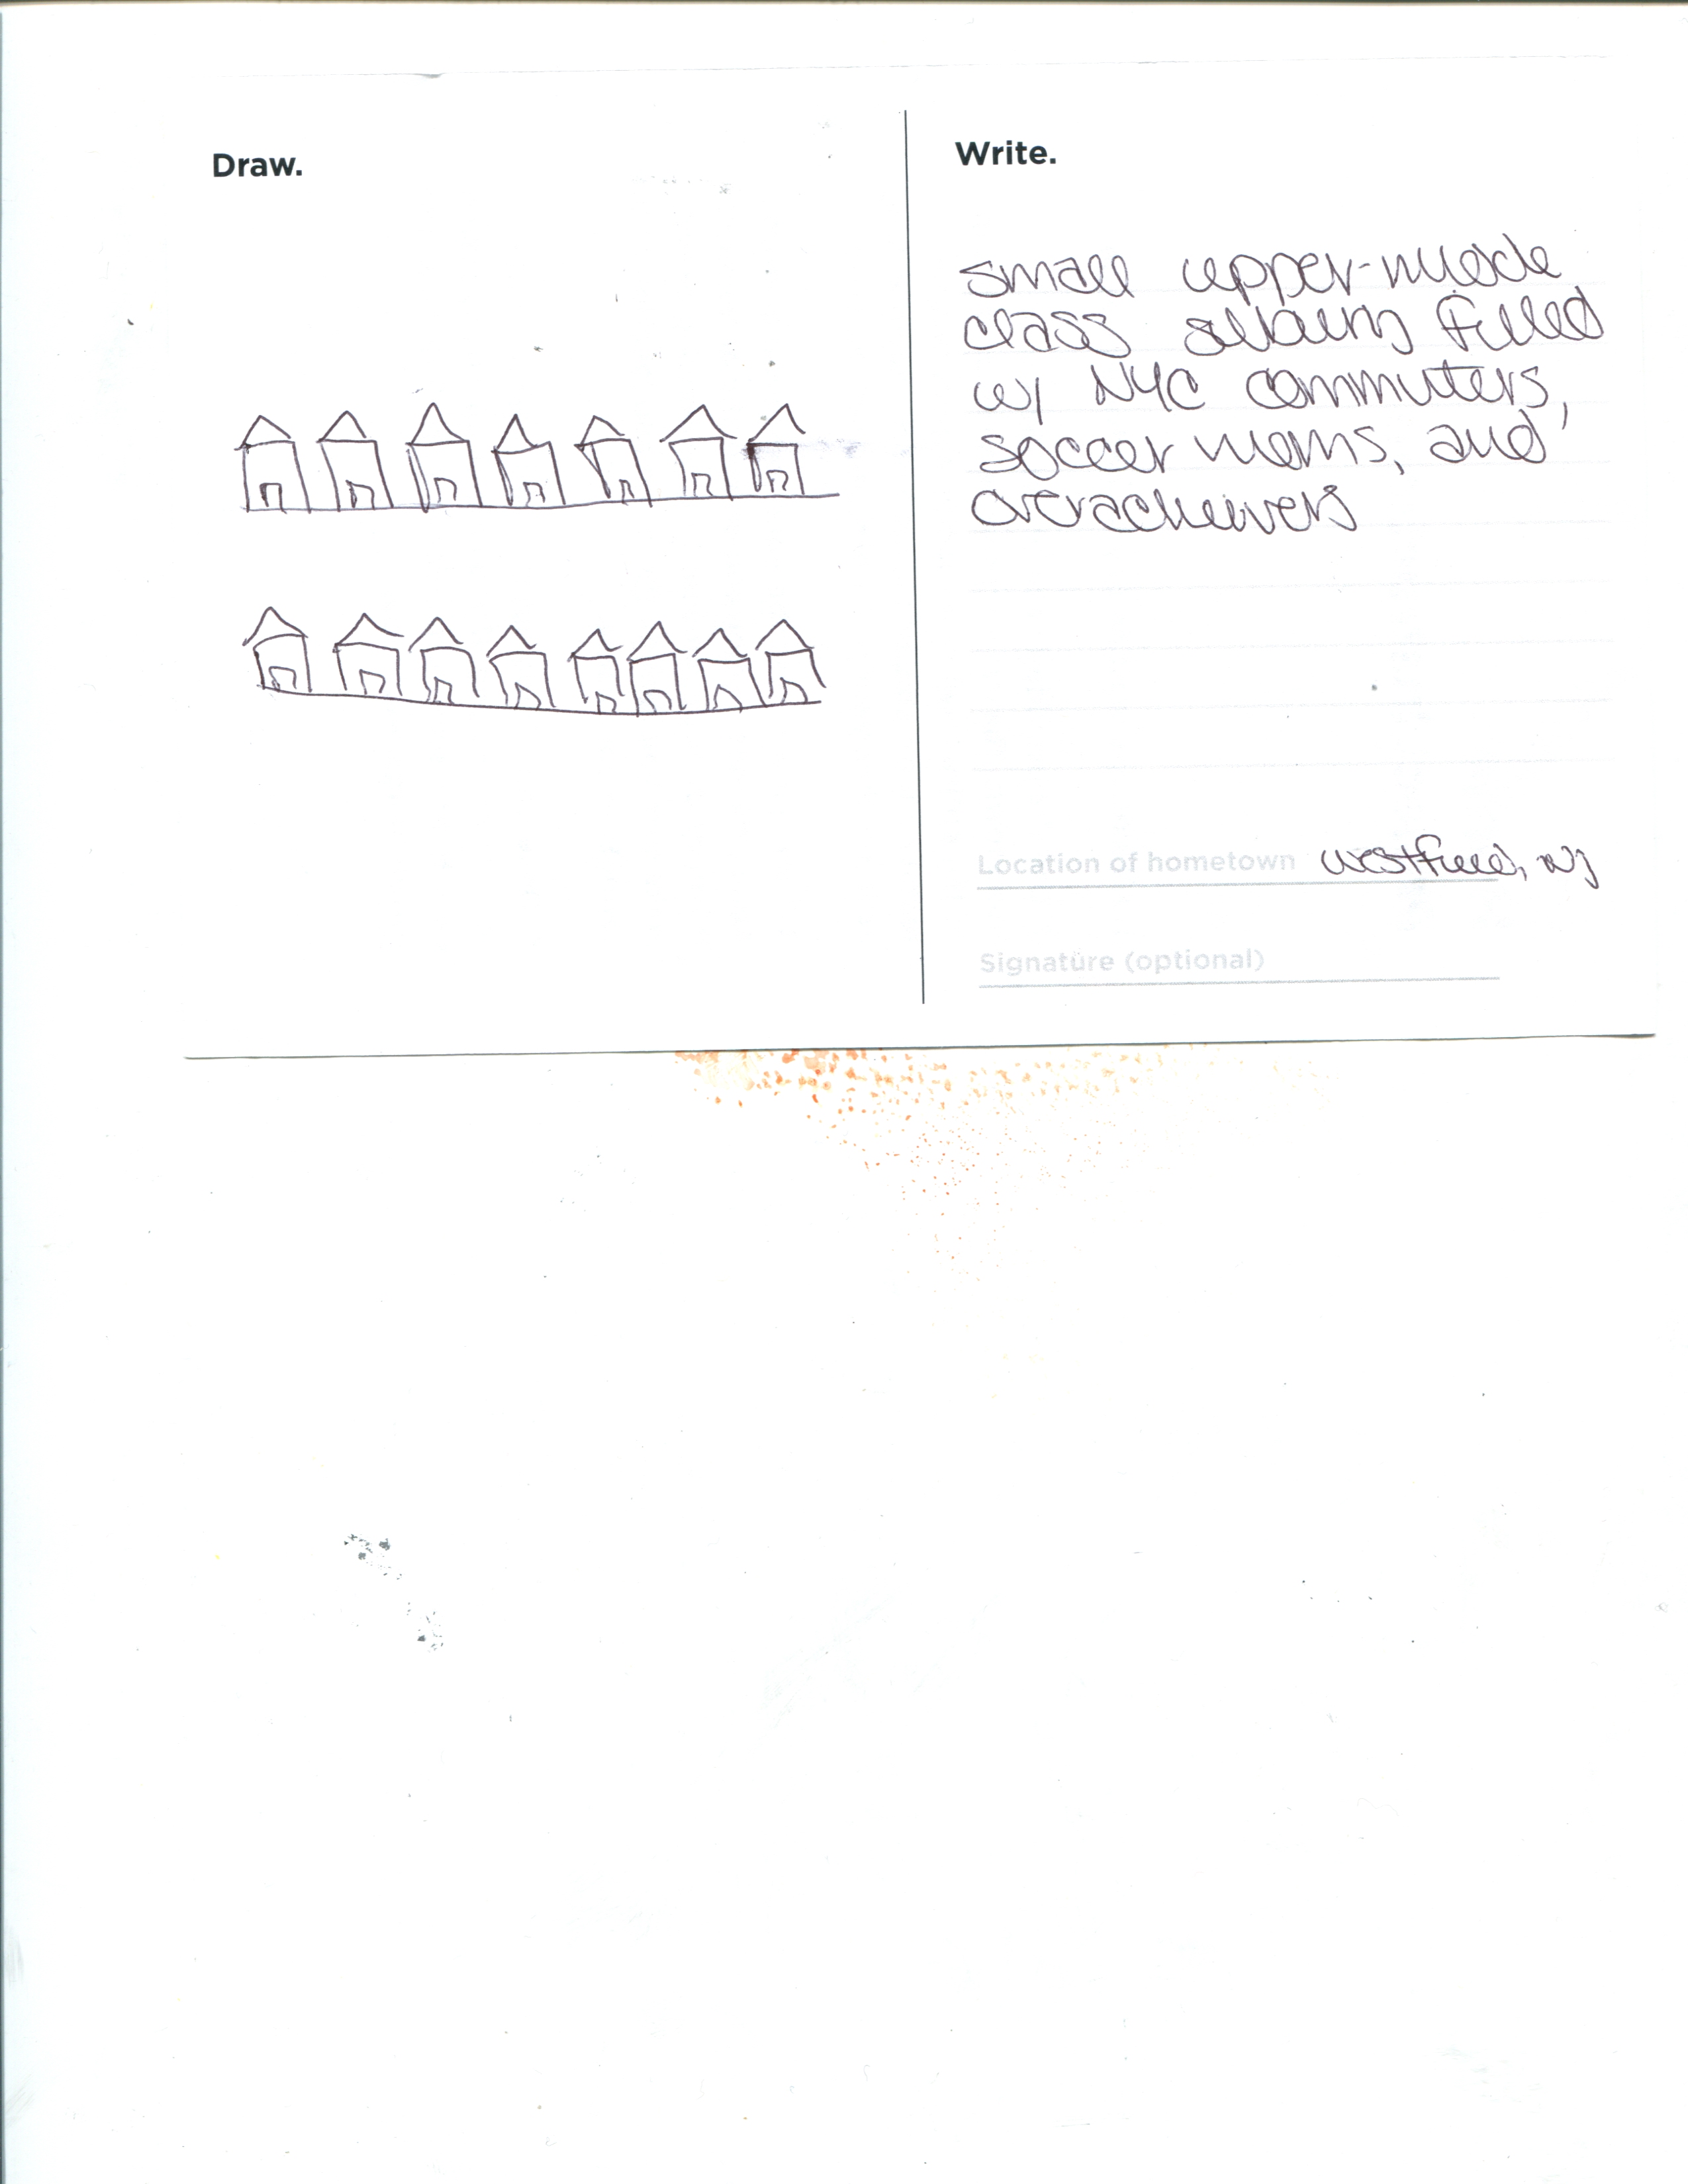 Draw.
Write.
small upper-middle
class suburb filled
w/ NYC commuters,
soccer moms, and
overacheivers
Location of hometown Westfield, NJ
Signature (optional)